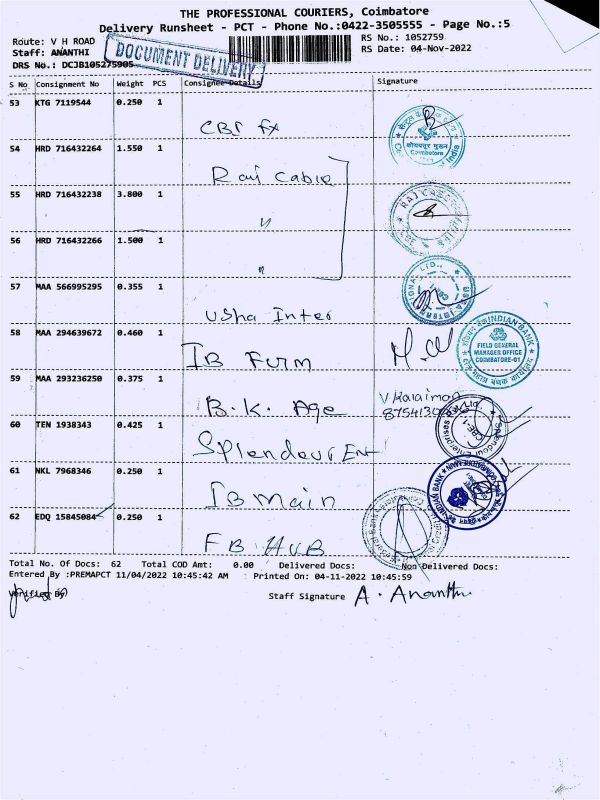 THE PROFESSIONAL COURIERS, Coimbatore
Delivery Runsheet - PCT - Phone No.:0422-3505555 - Page No.:5
Route: V H ROAD
RS No.: 1052759
Staff: ANANTHI
DOCUMENT DELIVERY
RS Date: 04-Nov-2022
DRS No.: DCJB105275905
S No Consignment No Weight PCS Consignee Details Signature
53 KTG 7119544 0.250 1
CBI FX
54 HRD 716432264 1.550 1
कोयम्बतूर मुख्य
Coimbatore
India
Raj Cable
55 HRD 716432238 3.800 1
"
56 HRD 716432266 1.500 1
"
57 MAA 566995295 0.355 1
Usha Inter
58 MAA 294639672 0.460 1
IB Furm
INDIAN BANK
FIELD GENERAL
MANAGER OFFICE
COIMBATORE-01
59 MAA 293236250 0.375 1
B.K. Age
V Kalaimon
60 TEN 1938343 0.425 1
Splendour Ent
Splendour Enterprises Pvt. Ltd.
CBE-1
61 NKL 7968346 0.250 1
IB Main
INDIAN BANK
62 EDQ 15845084 0.250 1
FB HUB
Total No. Of Docs: 62 Total COD Amt: 0.00 Delivered Docs: Non Delivered Docs:
Entered By :PREMAPCT 11/04/2022 10:45:42 AM Printed On: 04-11-2022 10:45:59
Verified By
Staff Signature A. Ananthi